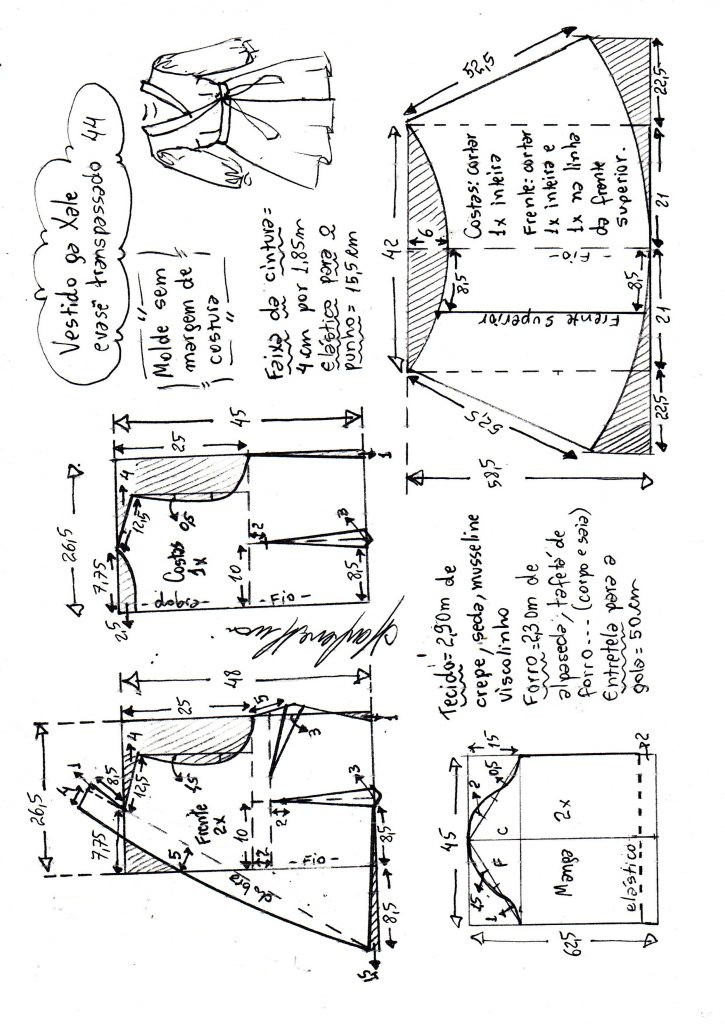 Vestido ga Xale
evasê transpassado 44
Molde sem
margem de
costura
Faixa da cintura =
4cm por 1,85m
Elástico para o
punho = 15,5cm
26,5
4
7,75
12,5
2,5
0,5
25
45
Costas
1x
dobra
Fio
10
2
8,5
3
1
26,5
4
1
8,5
4
7,75
12,5
4,5
25
48
Frente
2x
5
dobra
10
2
2
5
3
Fio
3
8,5
8,5
1
42
6
52,5
52,5
58,5
8,5
8,5
Fio
Frente Superior
Costas: cortar
1x inteira
Frente: cortar
1x inteira e
1x na linha
da frente
superior.
22,5
21
21
22,5
Tecido = 2,90m de
crepe, seda, musseline
viscolinho
Forro = 2,30m de
alpaseda, tafetá de
forro... (corpo e saia)
Entretela para a
gola = 50cm
45
15
2
0,5
1
F
C
Manga 2x
elástico
2
62,5